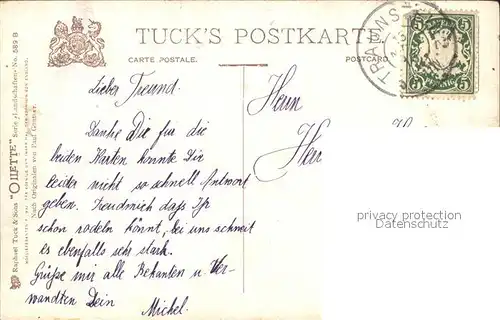 TUCK'S POSTKARTE.
CARTE POSTALE.
POSTCARD.
TRAUNST
BAYERN
5 5
PFENNIG
Raphael Tuck & Sons "OILETTE" Serie "Landschaften" No. 589 B
Nach Originalen von Paul
Lieber Freund.
Danke Dir für die
beiden Karten konnte Dir
leider nicht so schnell Antwort
geben. Freudmich dass Ihr
schon rodeln könnt, bei uns schneit
es ebenfalls sehr stark.
Grüße mir alle Bekanten u. Ver-
wandten Dein
Michel.
Herrn
Herr
privacy protection
Datenschutz